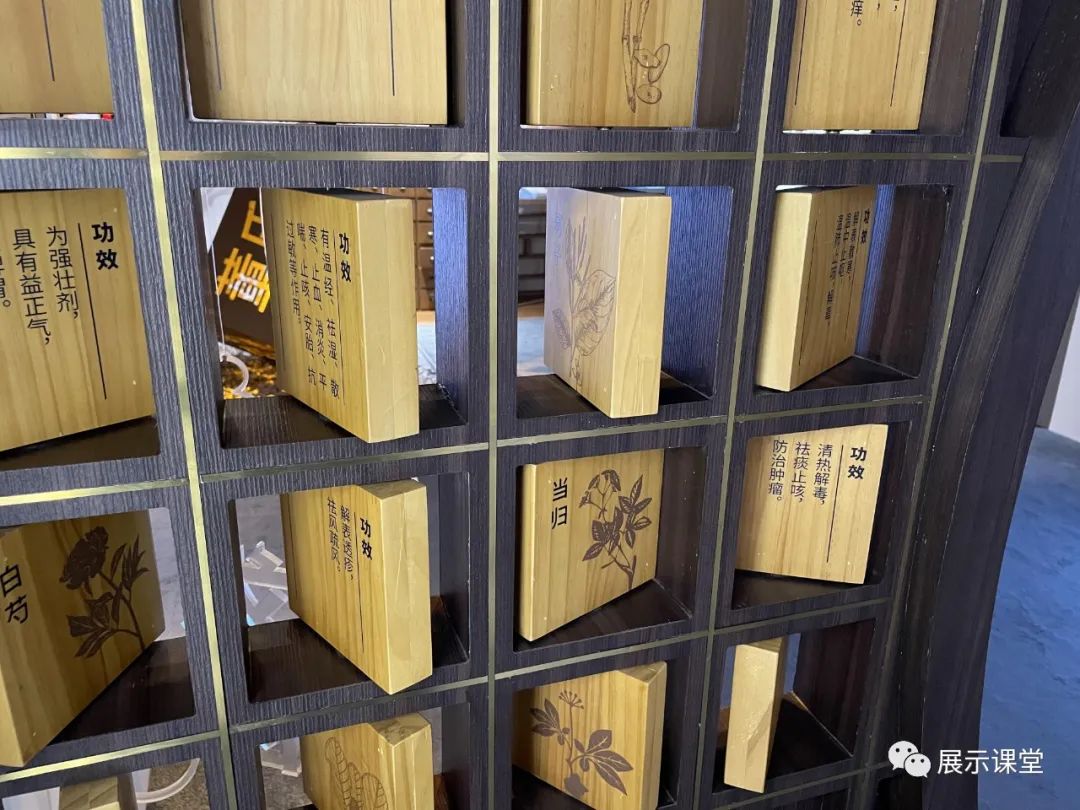 痒。
功效
为强壮剂,
具有益正气,
功效
有温经、祛湿、散
寒、止血、消炎、平
喘、止咳、安胎、抗
过敏等作用。
功效
解表散寒,
温中止呕,
白芍
功效
解表透疹,
当归
功效
清热解毒,
祛痰止咳,
防治肿瘤。
展示课堂